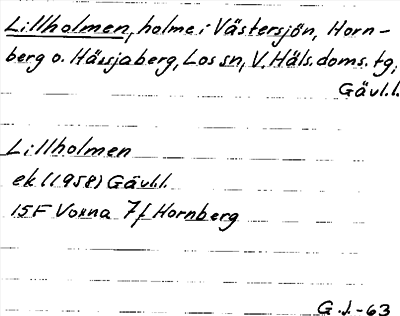 Lillholmen, holme i Västersjön, Horn-
berg o. Hässjaberg, Los sn, V. Häls. doms. tg,
Gävl.l.
Lillholmen
ek (1958) Gävl.l.
15F Voxna 7f Hornberg
G.J.-63